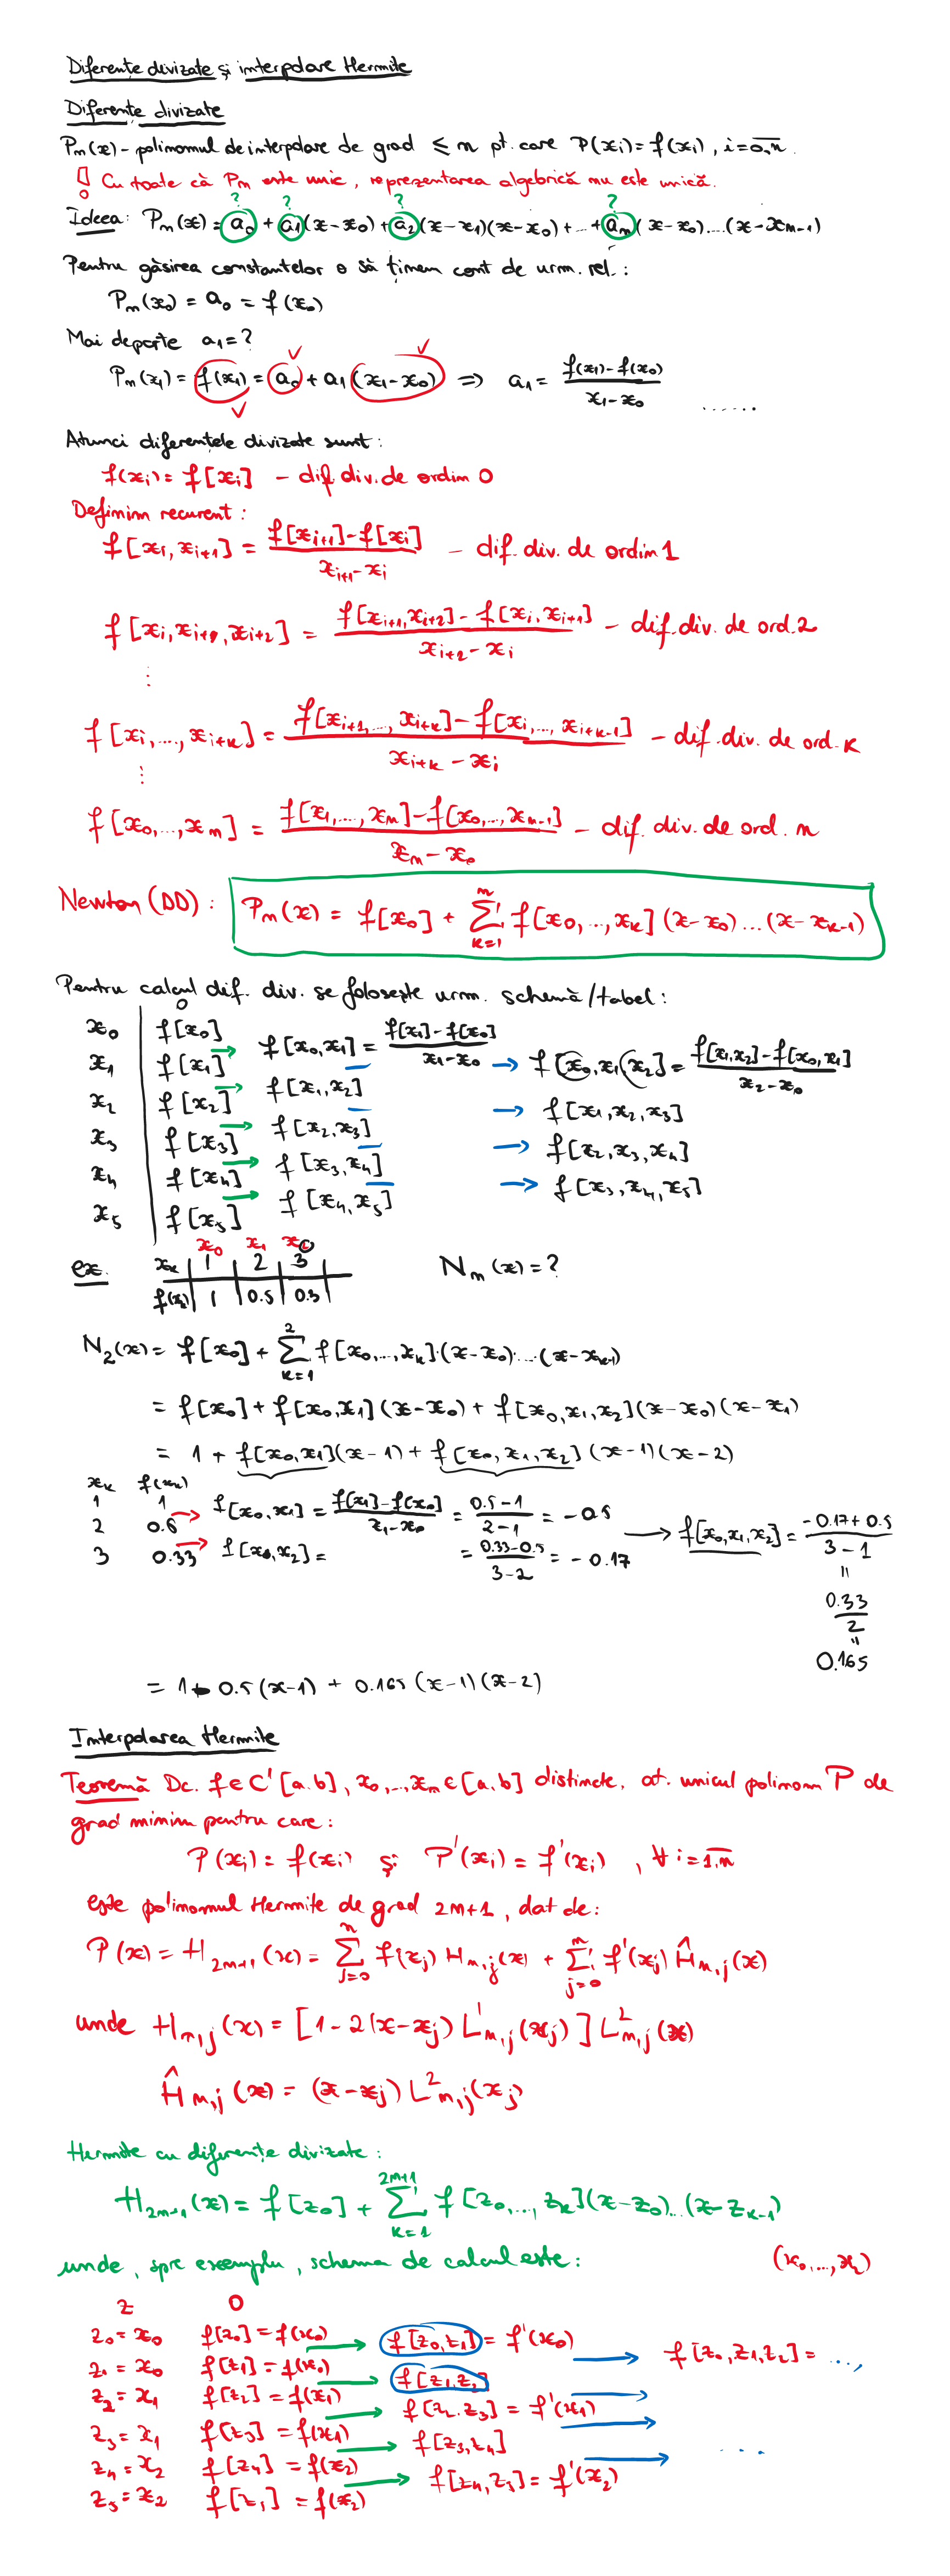 Diferențe divizate și interpolare Hermite
Diferențe divizate
Pn(x) - polinomul de interpolare de grad ≤ n pt. care P(xi) = f(xi), i=0,n.
! Cu toate că Pn este unic, reprezentarea algebrică nu este unică.
? ? ? ?
Ideea: Pn(x) = a0 + a1(x-x0) + a2(x-x1)(x-x0) + ... + an(x-x0)...(x-xn-1)
Pentru găsirea constantelor o să ținem cont de urm. rel.:
Pn(x0) = a0 = f(x0)
Mai departe a1 = ?
Pn(x1) = f(x1) = a0 + a1(x1-x0) ⇒ a1 = (f(x1)-f(x0))/(x1-x0) ......
Atunci diferențele divizate sunt:
f(xi) = f[xi] - dif. div. de ordin 0
Definim recurent:
f[xi, xi+1] = (f[xi+1]-f[xi])/(xi+1-xi) - dif. div. de ordin 1
f[xi, xi+1, xi+2] = (f[xi+1, xi+2] - f[xi, xi+1])/(xi+2 - xi) - dif. div. de ord. 2
⋮
f[xi,...,xi+k] = (f[xi+1,..., xi+k] - f[xi,..., xi+k-1])/(xi+k - xi) - dif. div. de ord. k
⋮
f[x0,...,xn] = (f[x1,...,xn] - f[x0,...,xn-1])/(xn - x0) - dif. div. de ord. n
Newton (DD): Pn(x) = f[x0] + ∑_{k=1}^{n} f[x0,...,xk](x-x0)...(x-xk-1)
Pentru calcul dif. div. se folosește urm. schemă/tabel:
0
x0 f[x0]
→ f[x0,x1] = (f[x1] - f[x0])/(x1-x0)
x1 f[x1] → f[x0,x1,x2] = (f[x1,x2] - f[x0,x1])/(x2-x0)
→ f[x1,x2]
x2 f[x2] → f[x1,x2,x3]
→ f[x2,x3]
x3 f[x3] → f[x2,x3,x4]
→ f[x3,x4]
x4 f[x4] → f[x3,x4,x5]
→ f[x4,x5]
x5 f[x5]
x0 x1 x2
ex. xk 1 2 3 Nn(x) = ?
f(xk) 1 0.5 0.3
N2(x) = f[x0] + ∑_{k=1}^{2} f[x0,...,xk]·(x-x0)·...·(x-xk-1)
= f[x0] + f[x0,x1](x-x0) + f[x0,x1,x2](x-x0)(x-x1)
= 1 + f[x0,x1](x-1) + f[x0,x1,x2](x-1)(x-2)
xk f(xk)
1 1 → f[x0,x1] = (f[x1]-f(x0))/(x1-x0) = (0.5-1)/(2-1) = -0.5
2 0.5 → f[x0,x1,x2] = (-0.17+0.5)/(3-1)
3 0.33 → f[x1,x2] = = (0.33-0.5)/(3-2) = -0.17
=
0.33/2
=
0.165
= 1 - 0.5(x-1) + 0.165(x-1)(x-2)
Interpolarea Hermite
Teoremă Dc. f ∈ C¹[a,b], x0,...,xn ∈ [a,b] distincte, at. unicul polinom P de
grad minim pentru care:
P(xi) = f(xi) și P'(xi) = f'(xi), ∀ i=1,n
este polinomul Hermite de grad 2n+1, dat de:
P(x) = H2n+1(x) = ∑_{j=0}^{n} f(xj) Hn,j(x) + ∑_{j=0}^{n} f'(xj) Ĥn,j(x)
unde Hn,j(x) = [1-2(x-xj) L'n,j(xj)] L²n,j(x)
Ĥn,j(x) = (x-xj) L²n,j(xj)
Hermite cu diferențe divizate:
H2n+1(x) = f[z0] + ∑_{k=1}^{2n+1} f[z0,...,zk](x-z0)...(x-zk-1)
unde, spre exemplu, schema de calcul este: (x0,...,x2)
z 0
z0 = x0 f[z0] = f(x0)
→ f[z0,z1] = f'(x0)
z1 = x0 f[z1] = f(x0) → f[z0,z1,z2] = ...,
→ f[z1,z2]
z2 = x1 f[z2] = f(x1)
→ f[z2,z3] = f'(x1)
z3 = x1 f[z3] = f(x1)
→ f[z3,z4]
z4 = x2 f[z4] = f(x2) ...
→ f[z4,z5] = f'(x2)
z5 = x2 f[z5] = f(x2)